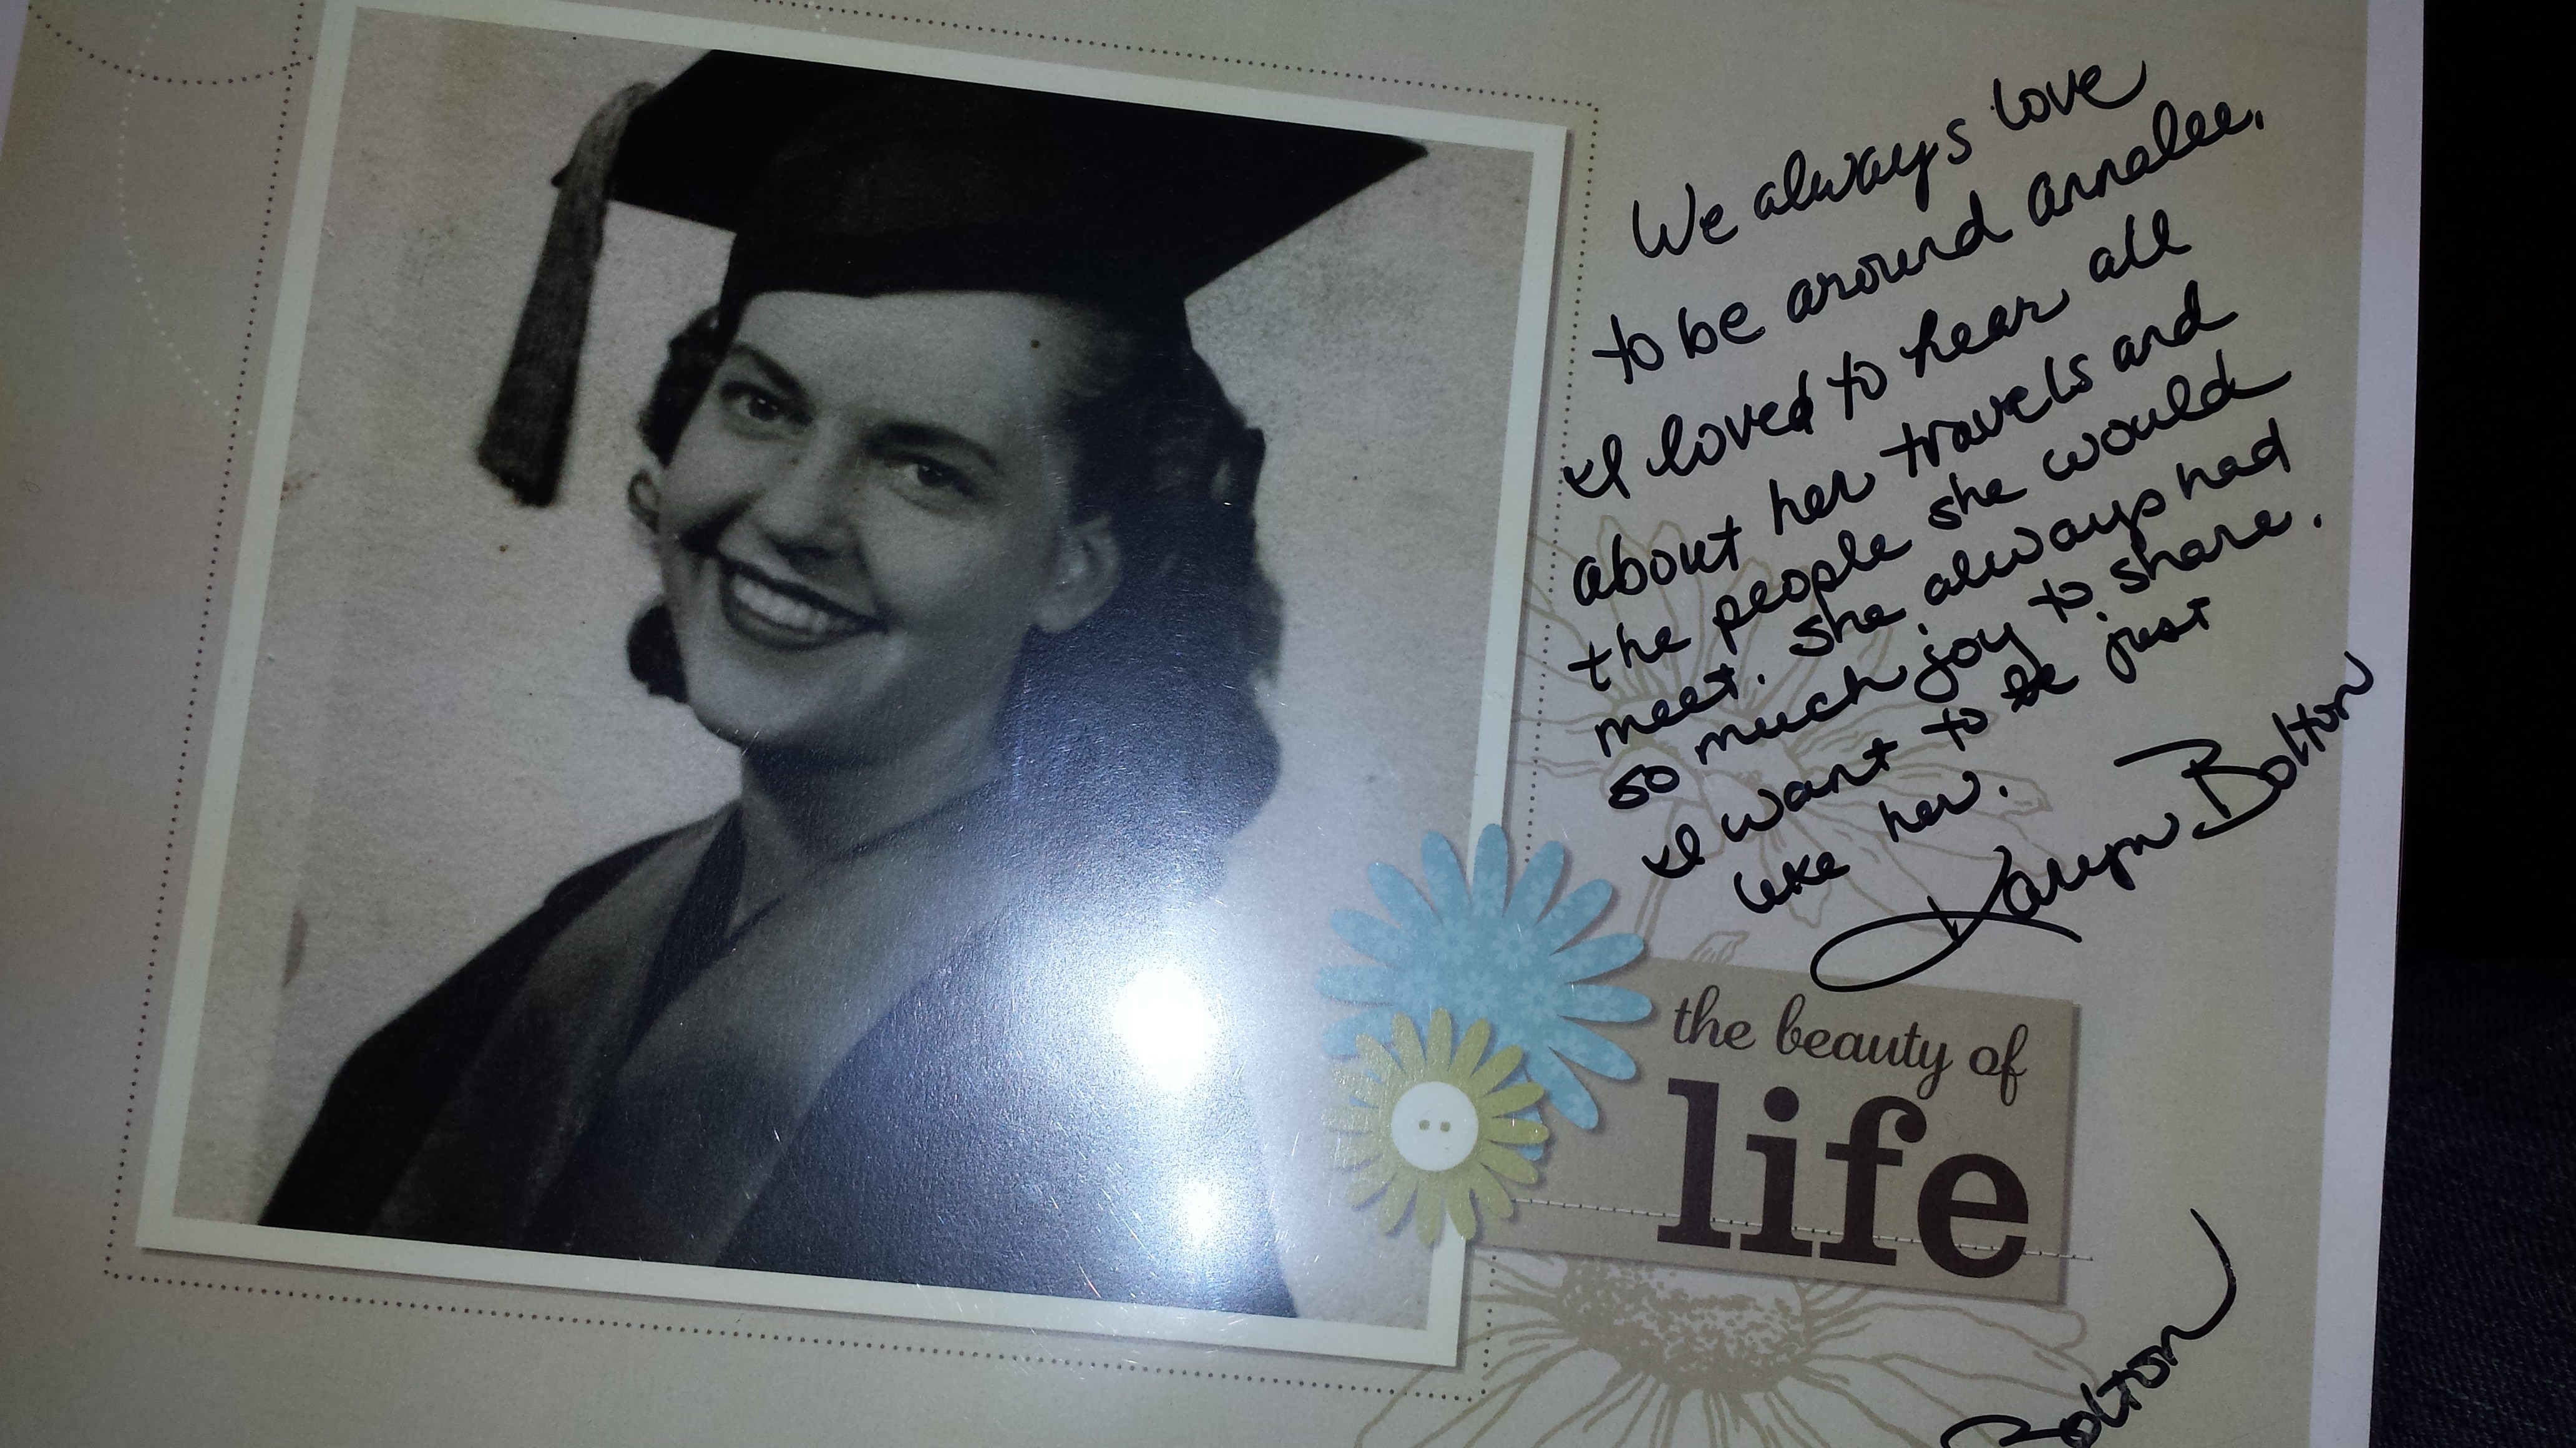 We always love
to be around annalee.
I loved to hear all
about her travels and
the people she would
meet. She always had
so much joy to share.
I want to be just
like her.
Karyn Bolton
the beauty of
life
Bolton